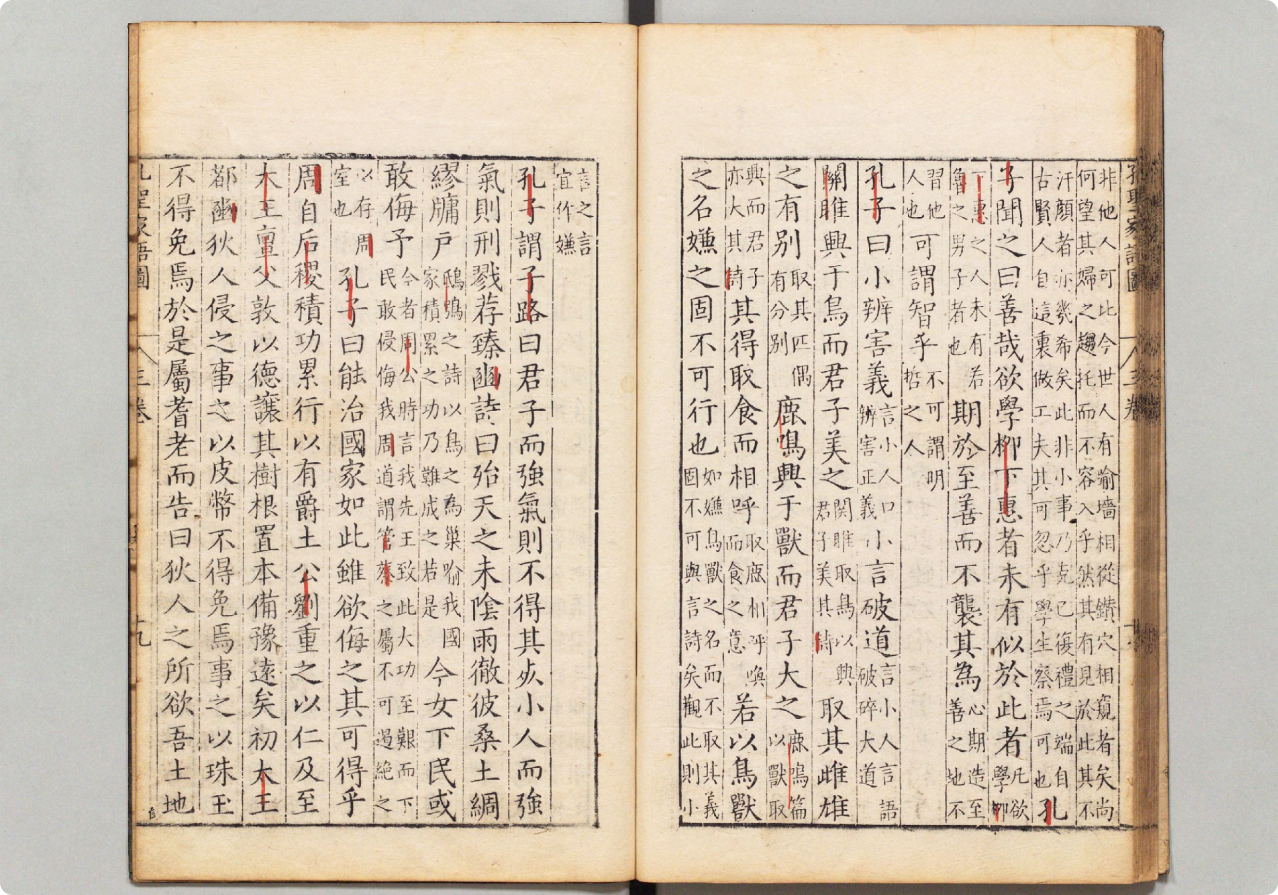 非他人可比今世人有喻墻相從鑽穴相窺者矣尚
何望其婦之趨托而不容入乎然其有見於此其不
汗顏者亦幾希矣此非小事乃克己復禮之端自
古賢人自這裏做工夫其可忽乎學生察焉可也孔
子聞之曰善哉欲學柳下惠者未有似於此者凡欲學柳
下惠之人未有若魯之男子者也期於至善而不襲其為心期造至善之地不
習他人也可謂智乎不可謂明哲之人
孔子曰小辨害義言小人口辨害正義小言破道言小人言語破碎大道
關雎興于鳥而君子美之関雎取鳥以興君子美其詩取其雌雄
之有别取其匹偶有分别鹿鳴興于獸而君子大之鹿鳴篇以獸取
興而君子亦大其詩其得取食而相呼取鹿相呼喚而食之意若以鳥獸
之名嫌之固不可行也如嫌鳥獸之名而不取其義固不可與言詩矣觀此則小
言之言宜作嫌
孔子謂子路曰君子而強氣則不得其死小人而強
氣則刑戮荐臻豳詩曰殆天之未陰雨徹彼桑土綢
繆牖戶鴟鴞之詩以鳥之為巢喻我國家積累之功乃難成之若是今女下民或
敢侮予今者周公時言我先王致此大功至艱而下民敢侵侮我周道謂管蔡之屬不可過絕之
以存周室也孔子曰能治國家如此雖欲侮之其可得乎
周自后稷積功累行以有爵土公劉重之以仁及至
大王亶父敦以德讓其樹根置本備豫遠矣初大王
都豳狄人侵之事之以皮幣不得免焉事之以珠玉
不得免焉於是屬耆老而告曰狄人之所欲吾土地
孔聖家語圖 三卷 十九